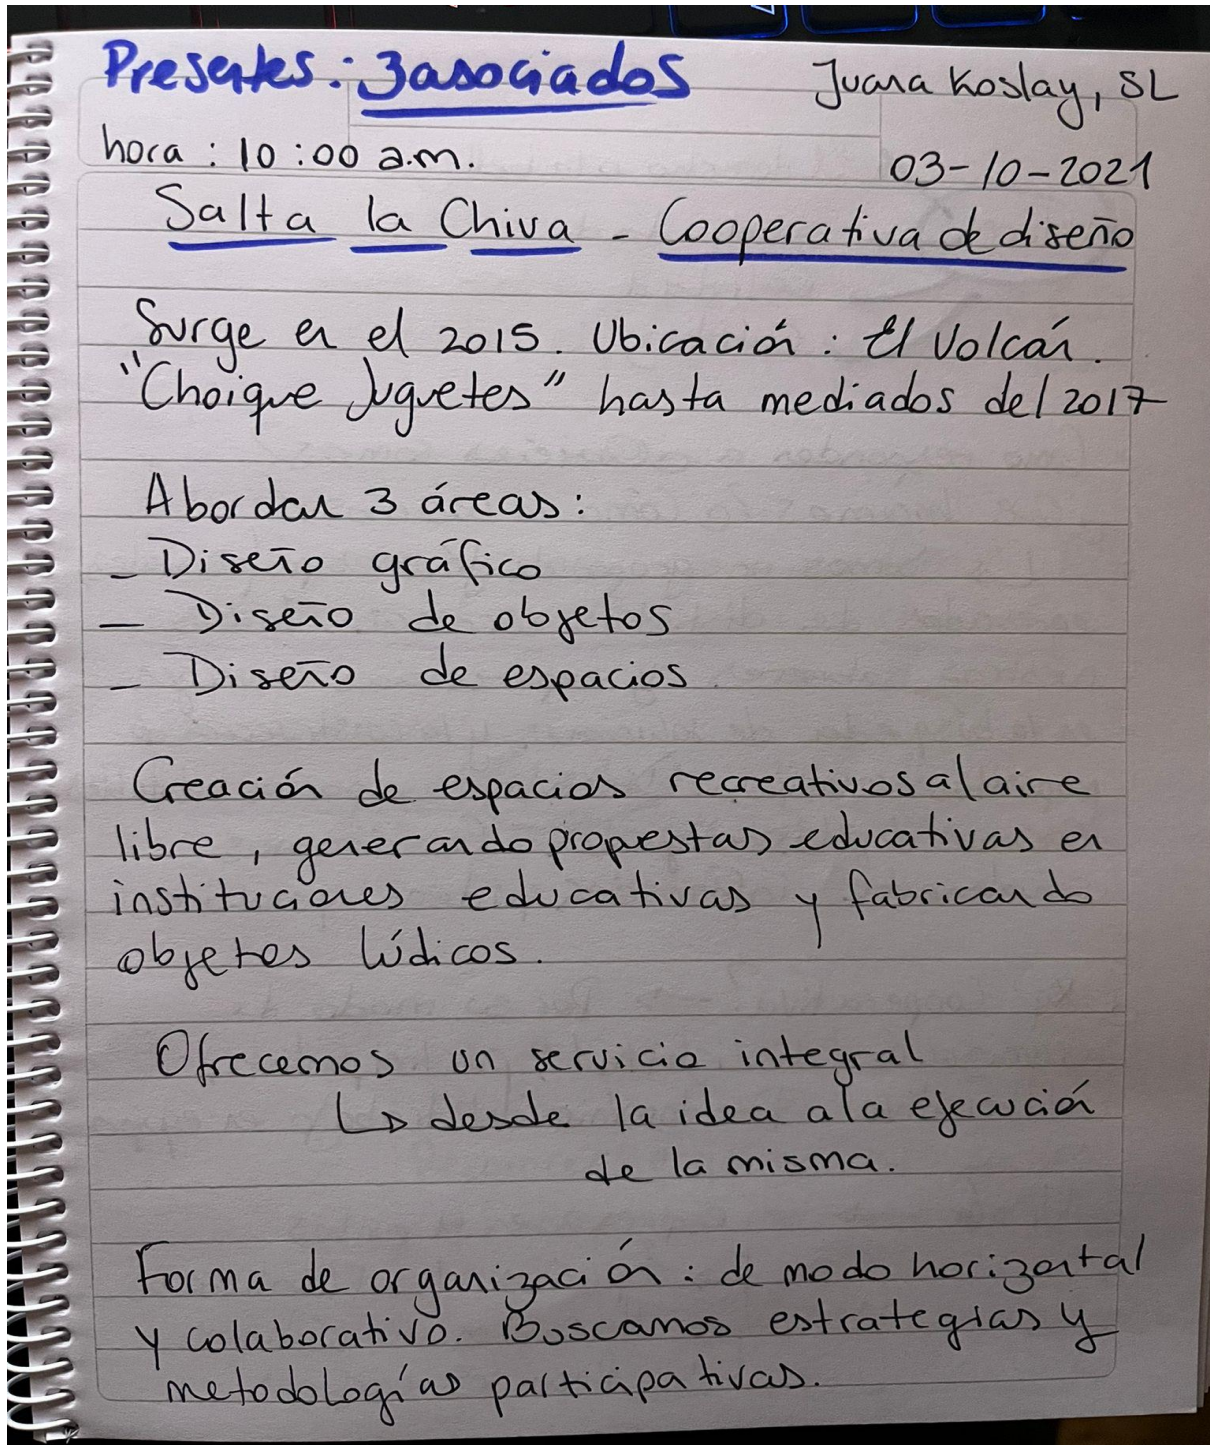 Presentes: 3 asociados
Juana Koslay, SL
hora: 10:00 a.m.
03-10-2021
Salta la Chiva - Cooperativa de diseño
Surge en el 2015. Ubicación: El Volcán.
"Choique Juguetes" hasta mediados del 2017
Abordan 3 áreas:
- Diseño gráfico
- Diseño de objetos
- Diseño de espacios
Creación de espacios recreativos al aire
libre, generando propuestas educativas en
instituciones educativas y fabricando
objetos lúdicos.
Ofrecemos un servicio integral
↳ desde la idea a la ejecución
de la misma.
Forma de organización: de modo horizontal
y colaborativo. Buscamos estrategias y
metodologías participativas.